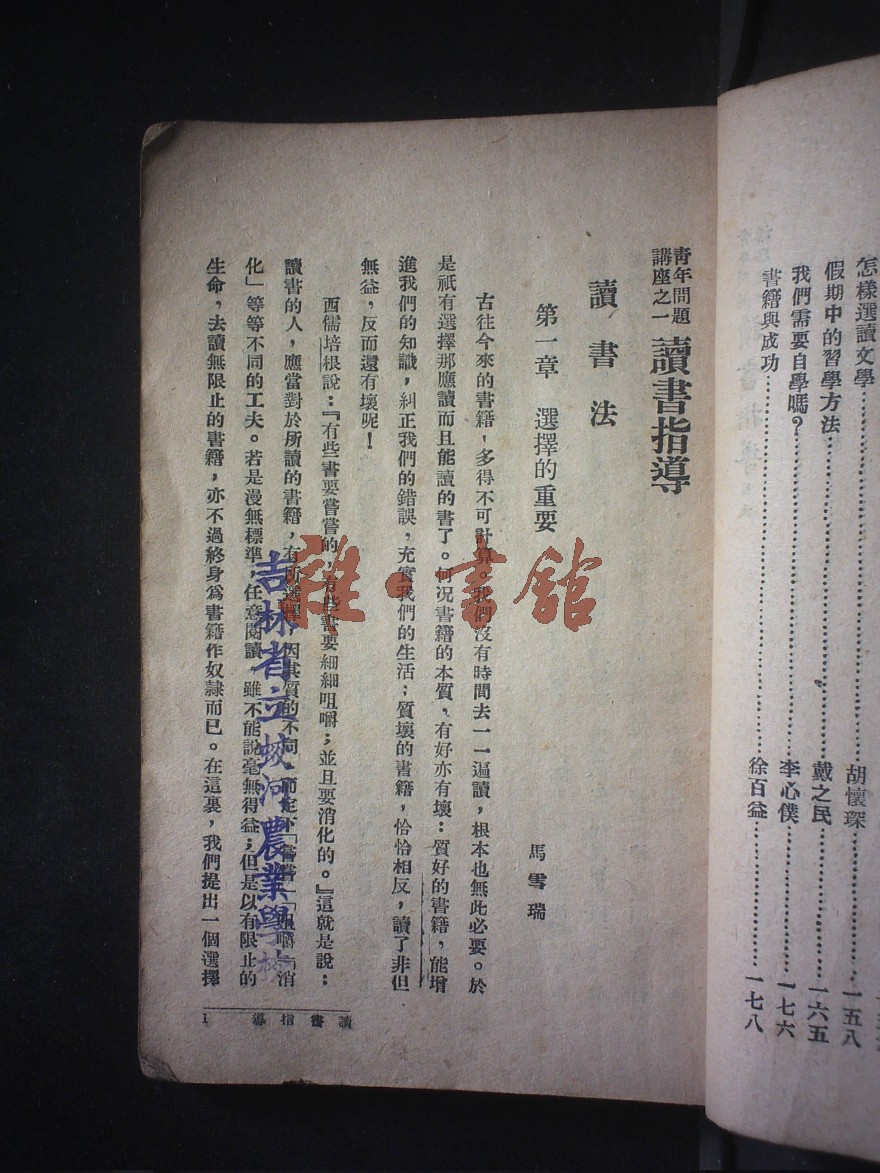 怎樣選讀文學……胡懷琛……一五八
假期中的習學方法……戴之民……一六五
我們需要自學嗎？……李心僕……一七六
書籍與成功……徐百益……一七八
青年問題
講座之一
讀書指導
讀書法
第一章 選擇的重要
馬雪瑞
古往今來的書籍，多得不可計算。我們沒有時間去一一遍讀，根本也無此必要。於
是祇有選擇那應讀而且能讀的書了。何況書籍的本質，有好亦有壞：質好的書籍，能增
進我們的知識，糾正我們的錯誤，充實我們的生活；質壞的書籍，恰恰相反，讀了非但
無益，反而還有壞呢！
西儒培根說：『有些書要嘗嘗的，有些書要細細咀嚼；並且要消化的。』這就是說：
讀書的人，應當對於所讀的書籍，有所選擇，因其質的不同，而定下「嘗嘗」「咀嚼」「消
化」等等不同的工夫。若是漫無標準，任意閱讀，雖不能說毫無得益；但是以有限止的
生命，去讀無限止的書籍，亦不過終身爲書籍作奴隸而已。在這裏，我們提出一個選擇
讀書指導
1
吉林省立蛟河農業學校
雅·書館